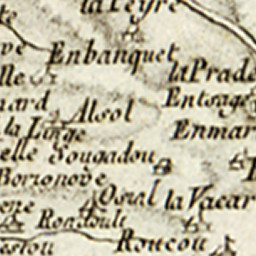 la Peyre
te
Enbanquet
ve
la Prade
lle
Entsage
nard
Alsol
la Linge
Enmar
elle Sougadou
Borionove
Osval la Vacar
one
Rondoule
estou
Roucou